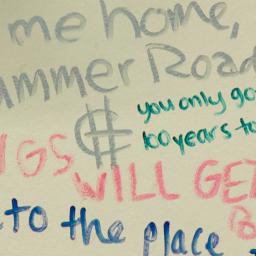 me home,
ummer Road
you only go
100 years to
UGS
WILL GE
to the place